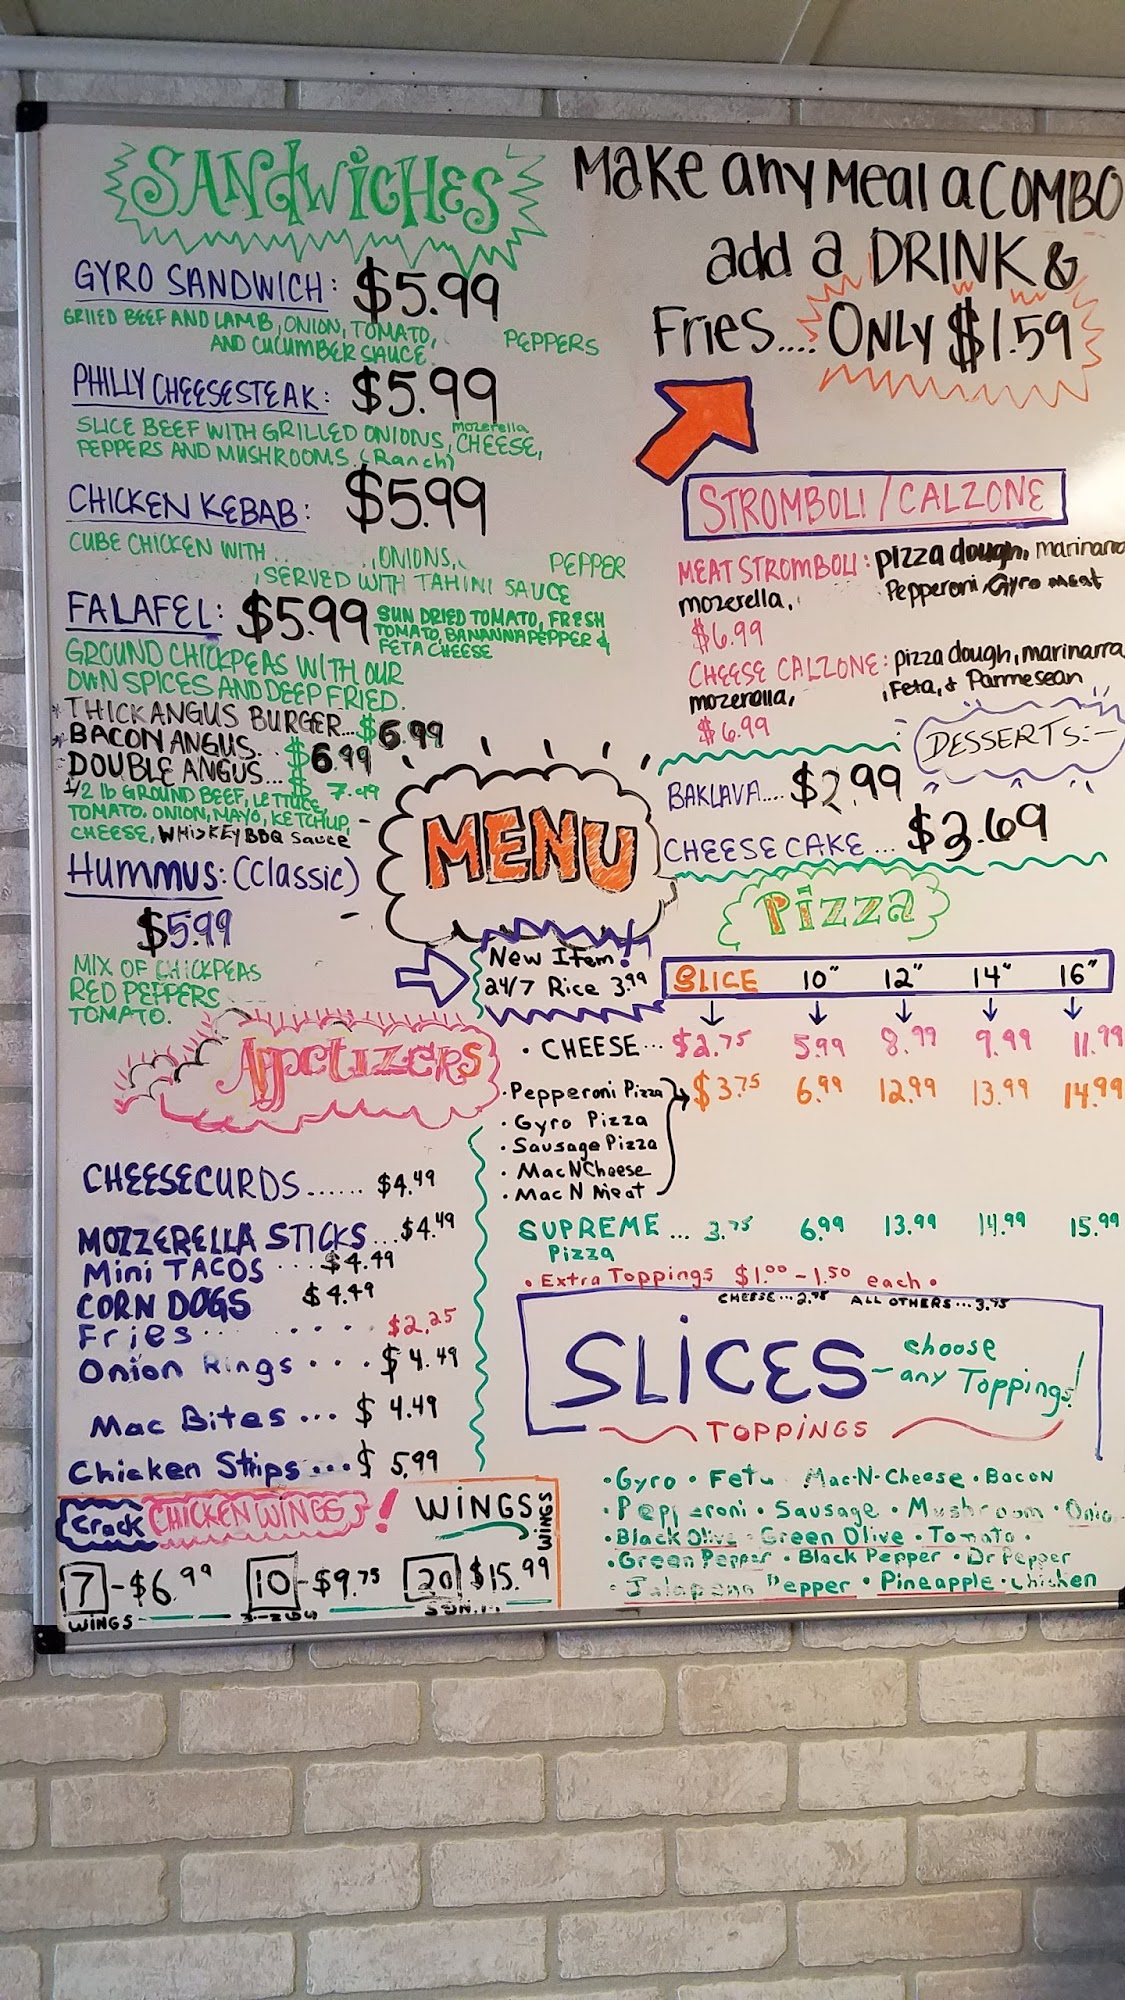 SANDWICHES
GYRO SANDWICH: $5.99
GRILLED BEEF AND LAMB, ONION, TOMATO, PEPPERS
AND CUCUMBER SAUCE.
PHILLY CHEESESTEAK: $5.99
SLICE BEEF WITH GRILLED ONIONS, Mozerella CHEESE,
PEPPERS AND MUSHROOMS. (Ranch)
CHICKEN KEBAB: $5.99
CUBE CHICKEN WITH ONIONS, PEPPER
, SERVED WITH TAHINI SAUCE
FALAFEL: $5.99 SUN DRIED TOMATO, FRESH
TOMATO, BANANNA PEPPER &
FETA CHEESE
GROUND CHICKPEAS WITH OUR
OWN SPICES AND DEEP FRIED.
*THICK ANGUS BURGER... $6.99
*BACON ANGUS.. $6.99
DOUBLE ANGUS... $7.49
1/2 lb GROUND BEEF, LETTUCE,
TOMATO, ONION, MAYO, KETCHUP,
CHEESE, WHISKEY BBQ Sauce
HUMMUS: (Classic)
$5.99
MIX OF CHICKPEAS
RED PEPPERS
TOMATO.
Make any Meal a COMBO
add a DRINK &
Fries.... ONLY $1.59
STROMBOLI / CALZONE
MEAT STROMBOLI: pizza dough, marinara
mozerella, Pepperoni Gyro meat
$6.99
CHEESE CALZONE: pizza dough, marinarra
mozerella, Feta, & Parmesean
$6.99
DESSERTS:-
BAKLAVA.... $2.99
CHEESE CAKE ... $3.69
MENU
New Item!
24/7 Rice 3.99
Pizza
SLICE 10" 12" 14" 16"
• CHEESE... $2.75 5.99 8.99 9.99 11.99
• Pepperoni Pizza $3.75 6.99 12.99 13.99 14.99
• Gyro Pizza
• Sausage Pizza
• Mac N Cheese
• Mac N Meat
SUPREME ... 3.75 6.99 13.99 14.99 15.99
Pizza
• Extra Toppings $1.00 - 1.50 each •
CHEESE...2.75 ALL OTHERS...3.75
SLICES - choose
any Toppings!
TOPPINGS
• Gyro • Feta Mac-N-Cheese • Bacon
• Pepperoni • Sausage • Mushroom • Onio
• Black Olive • Green Olive • Tomato •
• Green Pepper • Black Pepper • Dr Pepper
• Jalapeno Pepper • Pineapple • Chicken
Appetizers
CHEESECURDS...... $4.49
MOZZERELLA STICKS... $4.49
Mini TACOS ... $4.49
CORN DOGS $4.49
Fries ..... $2.25
Onion Rings .... $4.49
Mac Bites ... $4.49
Chicken Strips ... $5.99
Crack CHICKEN WINGS! WINGS WINGS
7 - $6.99 10 - $9.75 20 $15.99
WINGS